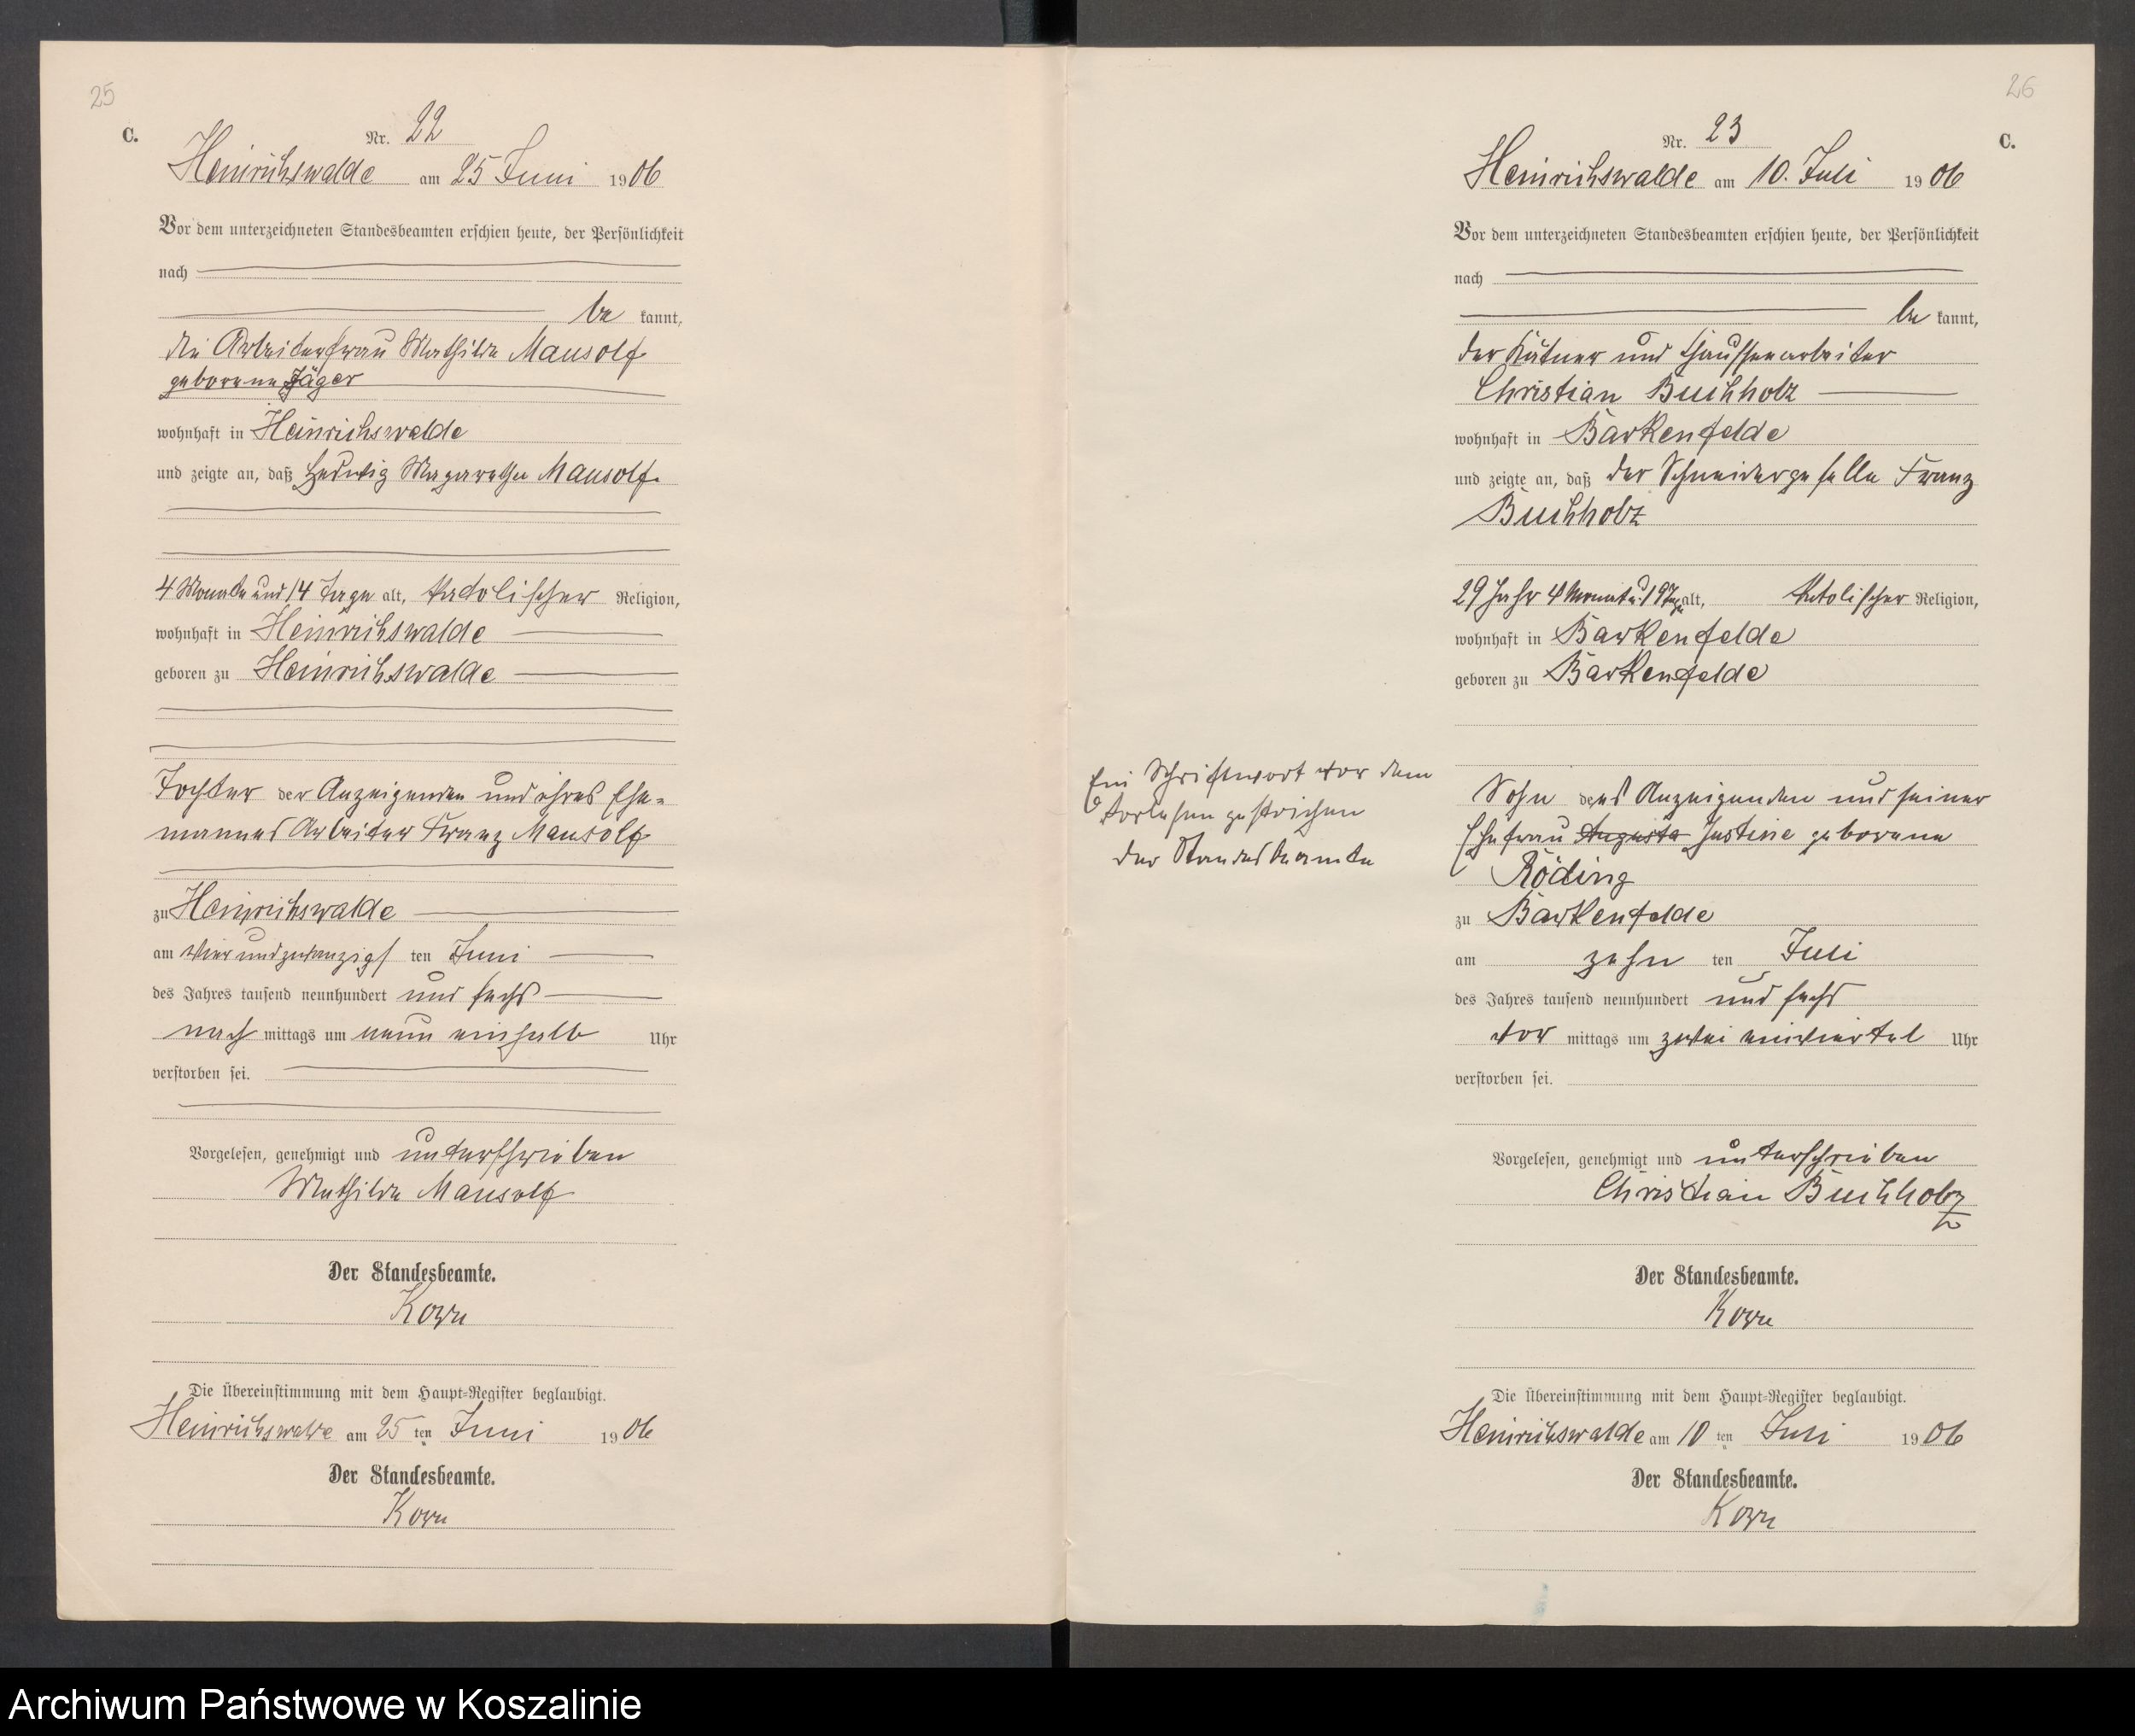 25
C.
Nr. 22
Heinrichswalde am 25 Juni 1906
Vor dem unterzeichneten Standesbeamten erschien heute, der Persönlichkeit
nach
be kannt,
die Arbeiterfrau Mathilde Mausolf
geborene Jäger
wohnhaft in Heinrichswalde
und zeigte an, daß Hedwig Magarethe Mausolf
4 Monate und 14 Tage alt, katolischer Religion,
wohnhaft in Heinrichswalde
geboren zu Heinrichswalde
Tochter der Anzeigenden und ihres Ehe-
mannes Arbeiter Franz Mausolf
zu Heinrichswalde
am vier und zwanzigs ten Juni
des Jahres tausend neunhundert und sechs
nach mittags um neun einhalb Uhr
verstorben sei.
Vorgelesen, genehmigt und unterschrieben
Mathilde Mausolf
Der Standesbeamte.
Korn
Die Übereinstimmung mit dem Haupt-Register beglaubigt.
Heinrichswalde am 25 ten Juni 1906
Der Standesbeamte.
Korn
26
C.
Nr. 23
Heinrichswalde am 10. Juli 1906
Vor dem unterzeichneten Standesbeamten erschien heute, der Persönlichkeit
nach
be kannt,
der Kätner und Chausseearbeiter
Christian Buchholz
wohnhaft in Barkenfelde
und zeigte an, daß der Schneidergeselle Franz
Buchholz
29 Jahr 4 Monat u. 19 Tage alt, katolischer Religion,
wohnhaft in Barkenfelde
geboren zu Barkenfelde
Ein Schriftwort vor dem
Vorlesen gestrichen
der Standesbeamte
Sohn des Anzeigenden und seiner
Ehefrau Augusta Justine geborene
Röding
zu Barkenfelde
am zehn ten Juli
des Jahres tausend neunhundert und sechs
vor mittags um zwei einviertel Uhr
verstorben sei.
Vorgelesen, genehmigt und unterschrieben
Christian Buchholz
Der Standesbeamte.
Korn
Die Übereinstimmung mit dem Haupt-Register beglaubigt.
Heinrichswalde am 10 ten Juli 1906
Der Standesbeamte.
Korn
Archiwum Państwowe w Koszalinie